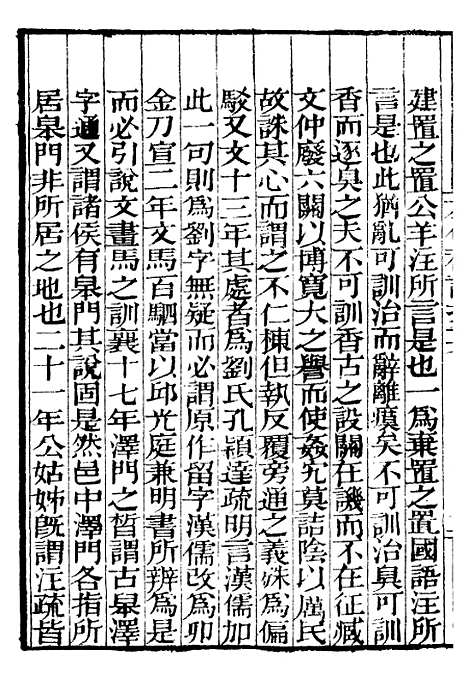 建置之置公羊注所言是也一爲棄置之置國語注所
言是也此猶亂可訓治而辭離瘼矣不可訓治臭可訓
香而逐臭之夫不可訓香古之設關在譏而不在征臧
文仲廢六關以博寬大之譽而使姦宄莫詰陰以厲民
故誅其心而謂之不仁棟但執反覆旁通之義殊爲偏
駁又文十三年其處者爲劉氏孔穎達疏明言漢儒加
此一句則爲劉字無疑而必謂原作留字漢儒改爲卯
金刀宣二年文馬百駟當以邱光庭兼明書所辨爲是
而必引說文畫馬之訓襄十七年澤門之晳謂古皋澤
字通又謂諸侯有皋門其說固是然邑中澤門各指所
居皋門非所居之地也二十一年公姑姊旣謂注疏皆